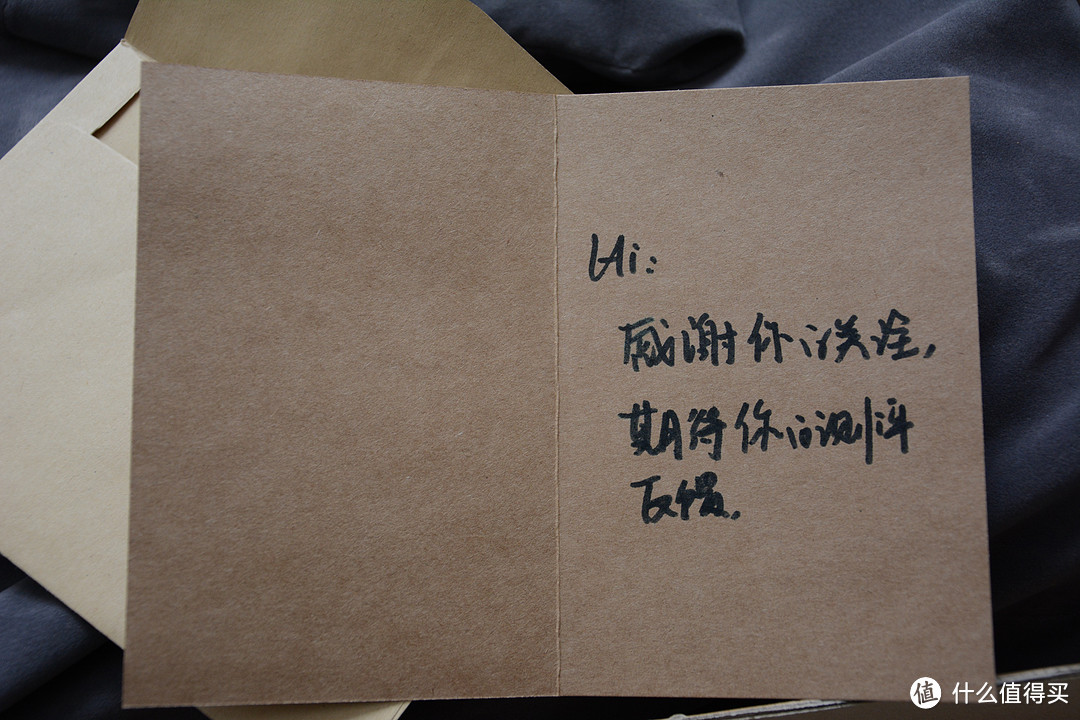 Hi:
感谢你的关注,
期待你的测评
反馈.
值 什么值得买